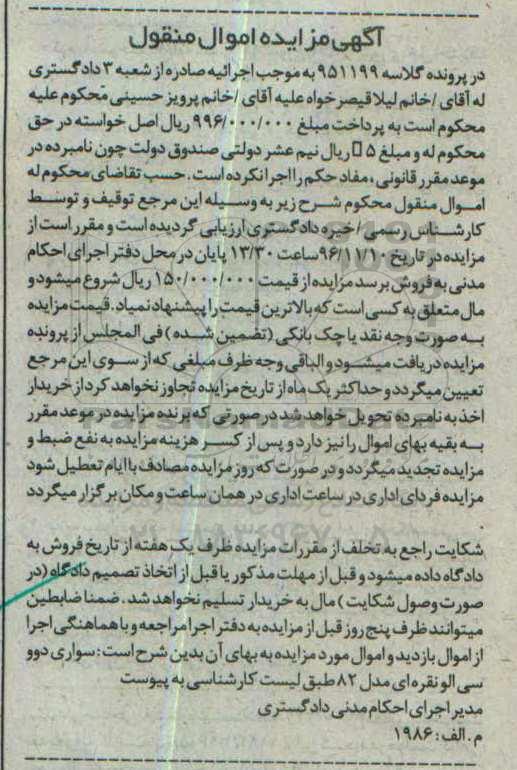 آگهی مزایده اموال منقول
در پرونده کلاسه ۹۵۱۱۹۹ به موجب اجرائیه صادره از شعبه ۳ دادگستری
له آقای /خانم لیلا قیصرخواه علیه آقای /خانم پرویز حسینی محکوم علیه
محکوم است به پرداخت مبلغ ۹۹۶/۰۰۰/۰۰۰ ریال اصل خواسته در حق
محکوم له و مبلغ ۵ ریال نیم عشر دولتی صندوق دولت چون نامبرده در
موعد مقرر قانونی ، مفاد حکم را اجرا نکرده است . حسب تقاضای محکوم له
اموال منقول محکوم شرح زیر به وسیله این مرجع توقیف و توسط
کارشناس رسمی / خبره دادگستری ارزیابی گردیده است و مقرر است از
مزایده در تاریخ ۹۶/۱۱/۱۰ ساعت ۱۳/۳۰ پایان در محل دفتر اجرای احکام
مدنی به فروش برسد مزایده از قیمت ۱۵۰/۰۰۰/۰۰۰ ریال شروع میشود و
مال متعلق به کسی است که بالاترین قیمت را پیشنهاد نمیاد . قیمت مزایده
به صورت وجه نقد یا چک بانکی (تضمین شده ) فی المجلس از برونده
مزایده دریافت میشود و الباقی وجه ظرف مبلغی که از سوی این مرجع
تعیین میگردد و حداکثر یک ماه از تاریخ مزایده تجاوز نخواهد کرد از خریدار
اخذ به نامبرده تحویل خواهد شد در صورتی که برنده مزایده در موعد مقرر
به بقیه بهای اموال را نیز دارد و پس از کسر هزینه مزایده به نفع ضبط و
مزایده تجدید میگردد و در صورت که روز مزایده مصادف با ایام تعطیل شود
مزایده فردای اداری در ساعت اداری در همان ساعت و مکان برگزار میگردد
.
شکایت راجع به تخلف از مقررات مزایده ظرف یک هفته از تاریخ فروش به
دادگاه داده میشود و قبل از مهلت مذکور یا قبل از اتخاذ تصمیم دادگاه (در
صورت وصول شکایت ) مال به خریدار تسلیم نخواهد شد . ضمنا ضابطین
میتوانند ظرف پنج روز قبل از مزایده به دفتر اجرا مراجعه و با هماهنگی اجرا
از اموال بازدید و اموال مورد مزایده به بهای آن بدین شرح است : سواری دوو
سی الو نقره ای مدل ۸۲ طبق لیست کارشناسی به پیوست
مدیر اجرای احکام مدنی دادگستری
م . الف : ۱۹۸۶